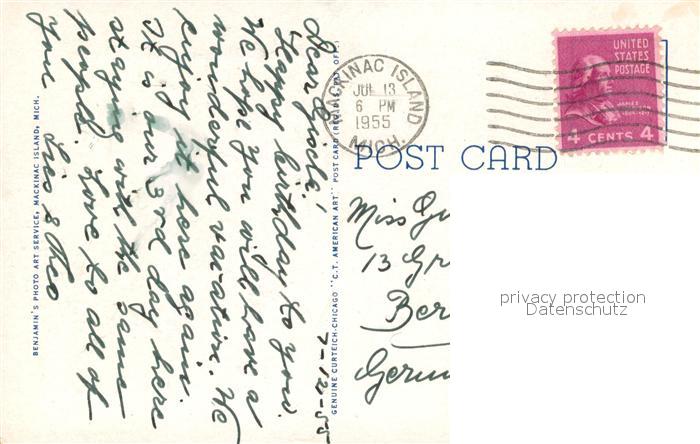 7-12-55
Dear Gisela!
Happy birthday to you.
We hope you will have a
wonderful vacation. We
enjoy it here again.
It is our 3rd day here
staying with the same
people. Love to all of
you
& Theo
BENJAMIN'S PHOTO ART SERVICE, MACKINAC ISLAND, MICH.
GENUINE CURTEICH-CHICAGO "C.T. AMERICAN ART" POST CARD
MACKINAC ISLAND
JUL 13
6 PM
1955
MICH.
UNITED
STATES
POSTAGE
JAMES
MADISON
4 CENTS 4
POST CARD
Miss
13 Gr
Ber
Germ
privacy protection
Datenschutz